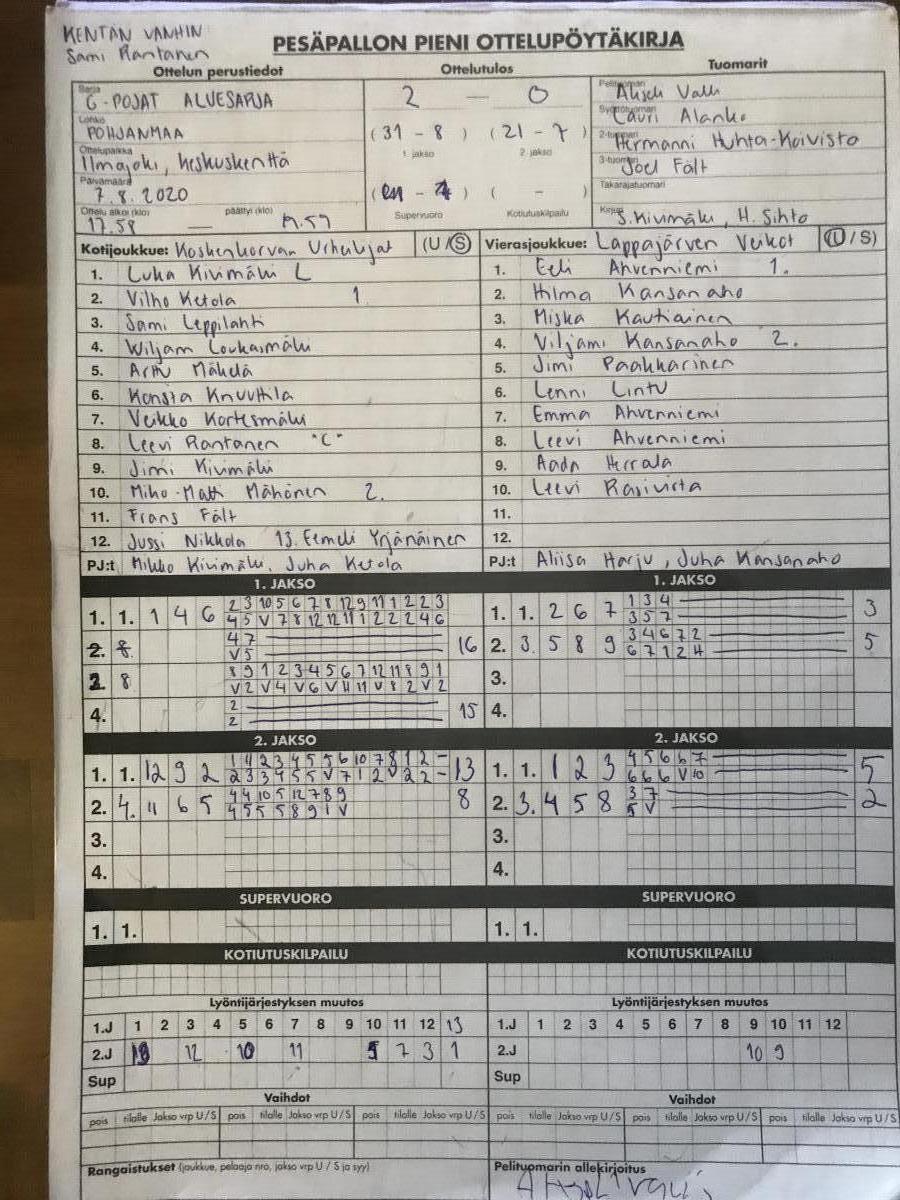 KENTÄN VANHIN
Sami Rantanen
PESÄPALLON PIENI OTTELUPÖYTÄKIRJA
Ottelun perustiedot
Ottelutulos
Tuomarit
Sarja
C-POJAT ALUESARJA
Lohko
POHJANMAA
Ottelupaikka
Ilmajoki, keskuskenttä
Päivämäärä
7.8.2020
Ottelu alkoi (klo) päättyi (klo)
17.58 — 19.59
2 — 0
(31 - 8) (21 - 7)
1. jakso 2. jakso
( - ) ( - )
Supervuoro Kotiutuskilpailu
Pelituomari
Valli
Syöttötuomari
Lauri Alanko
2-tuomari
Hermanni Huhta-Koivisto
3-tuomari
Joel Fält
Takarajatuomari
Kirjuri
S.Kivimäki, H. Sihto
Kotijoukkue: Koskenkorvan Urheilijat (U/S)
1. Luka Kivimäki L
2. Vilho Ketola 1
3. Sami Leppilahti
4. Wiljam Loukasmäki
5. Arttu Mähdä
6. Konsta Knuuttila
7. Veikko Kortesmäki
8. Leevi Rantanen "C"
9. Jimi Kivimäki
10. Miho-Matti Mähönen 2.
11. Frans Fält
12. Jussi Nikkola 13. Eemeli Yrjänäinen
PJ:t Mikko Kivimäki, Juha Ketola
Vierasjoukkue: Lappajärven Veikot (U/S)
1. Eeli Ahvenniemi 1.
2. Hilma Kansanaho
3. Miska Kautiainen
4. Viljami Kansanaho 2.
5. Jimi Paakkarinen
6. Lenni Lintu
7. Emma Ahvenniemi
8. Leevi Ahvenniemi
9. Aada Herrala
10. Leevi Rasivirta
11.
12.
PJ:t Aliisa Harju, Juha Kansanaho
1. JAKSO
1. 1. 1 4 6 2 3 10 5 6 7 8 12 9 11 1 2 2 3
4 5 V 7 8 12 12 11 1 2 2 2 4 6
2. 8. 4 7 16
V 5
2 8 8 9 1 2 3 4 5 6 7 12 11 8 9 1
V 2 V 4 V 6 V 11 11 V 8 2 V 2
4. 2 15
2
1. JAKSO
1. 1. 2 6 7 1 3 4 3
3 5 7
2. 3. 5 8 9 3 4 6 7 2 5
6 7 1 2 4
3.
4.
2. JAKSO
1. 1. 12 9 2 1 4 2 3 4 5 5 6 10 7 8 1 2 - 13
2 3 3 4 5 5 V 7 1 2 V 2 2 -
2. 4. 11 6 5 4 4 10 5 12 7 8 9 8
4 5 5 5 8 9 1 V
3.
4.
2. JAKSO
1. 1. 1 2 3 4 5 6 6 7 5
6 6 6 V 10
2. 3. 4 5 8 3 7 2
5 V
3.
4.
SUPERVUORO
1. 1.
SUPERVUORO
1. 1.
KOTIUTUSKILPAILU
KOTIUTUSKILPAILU
Lyöntijärjestyksen muutos
1.J 1 2 3 4 5 6 7 8 9 10 11 12 13
2.J 12 10 11 5 7 3 1
Sup
Lyöntijärjestyksen muutos
1.J 1 2 3 4 5 6 7 8 9 10 11 12
2.J 10 9
Sup
Vaihdot
pois tilalle Jakso vrp U/S pois tilalle Jakso vrp U/S pois tilalle Jakso vrp U/S
Vaihdot
pois tilalle Jakso vrp U/S pois tilalle Jakso vrp U/S pois tilalle Jakso vrp U/S
Rangaistukset (joukkue, pelaaja nro, jakso vrp U / S ja syy)
Pelituomarin allekirjoitus